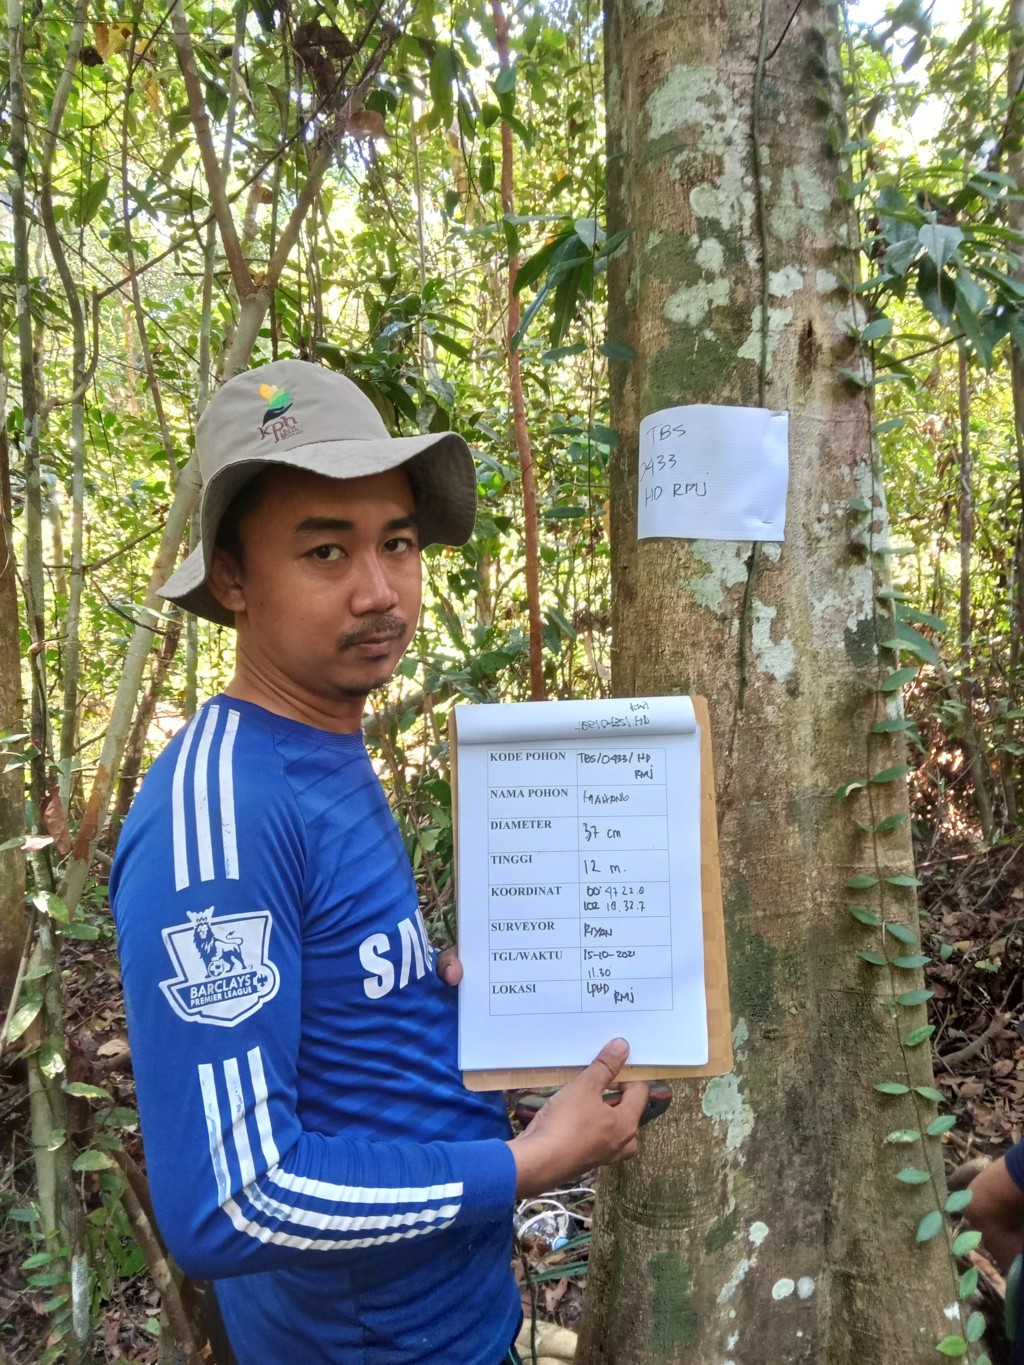 kph
TBS
0433
HD RMJ
KODE POHON TBS/0433/HD
RMJ
NAMA POHON MAHANG
DIAMETER 37 cm
TINGGI 12 m.
KOORDINAT 00° 47 22.0
102 18.32.7
SURVEYOR RIYAN
TGL/WAKTU 15-10-2021
11.30
LOKASI LPHD
RMJ
SAM
BARCLAYS
PREMIER LEAGUE